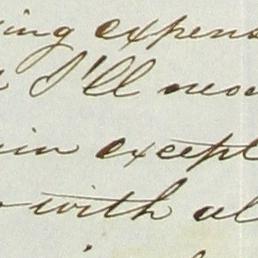 ing expens
I'll now
in except
with al